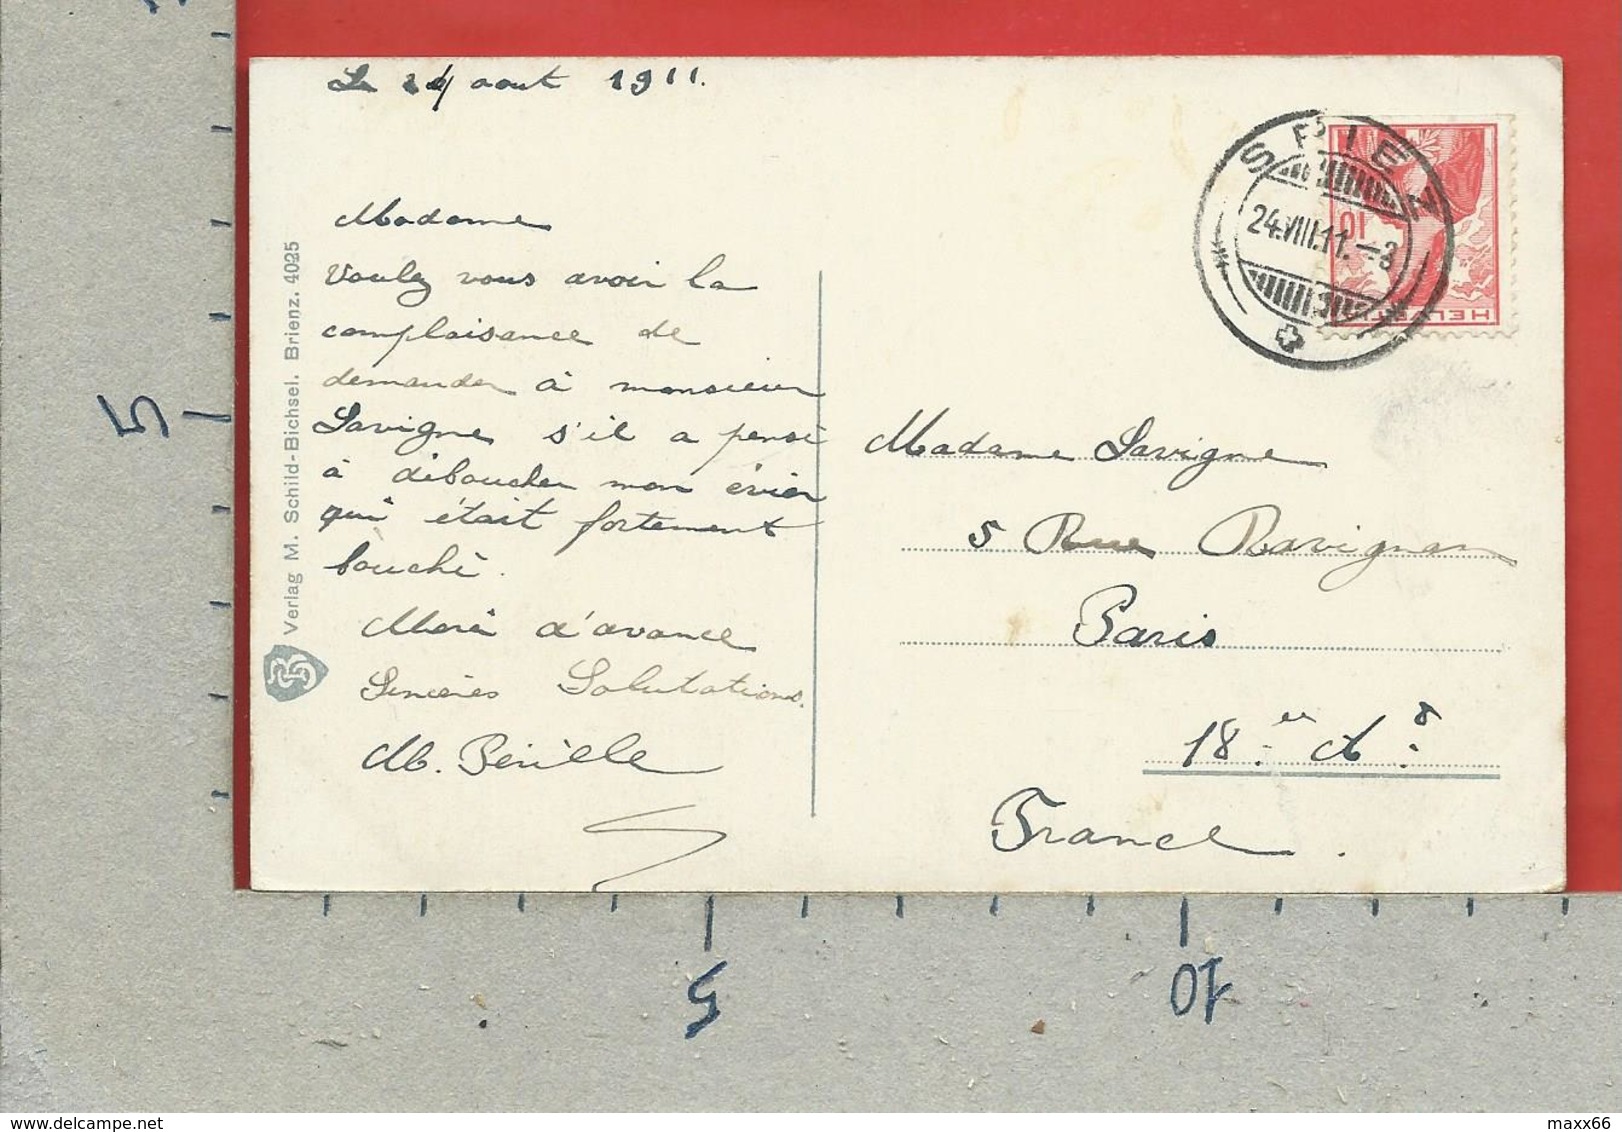 Le 24 aout 1911.
Madame
Voulez vous avoir la
complaisance de
demander à monsieur
Lavigne s'il a pensé
à déboucher mon évier
qui était fortement
bouché.
Merci d'avance
Sincères Salutations.
M.
Verlag M. Schild-Bichsel. Brienz. 4025
SPIEZ
24.VIII.11.-8
10
HELVETIA
Madame Lavigne
5 Rue Ravignan
Paris
18
France.
5
5
10
delcampe.net
maxx66